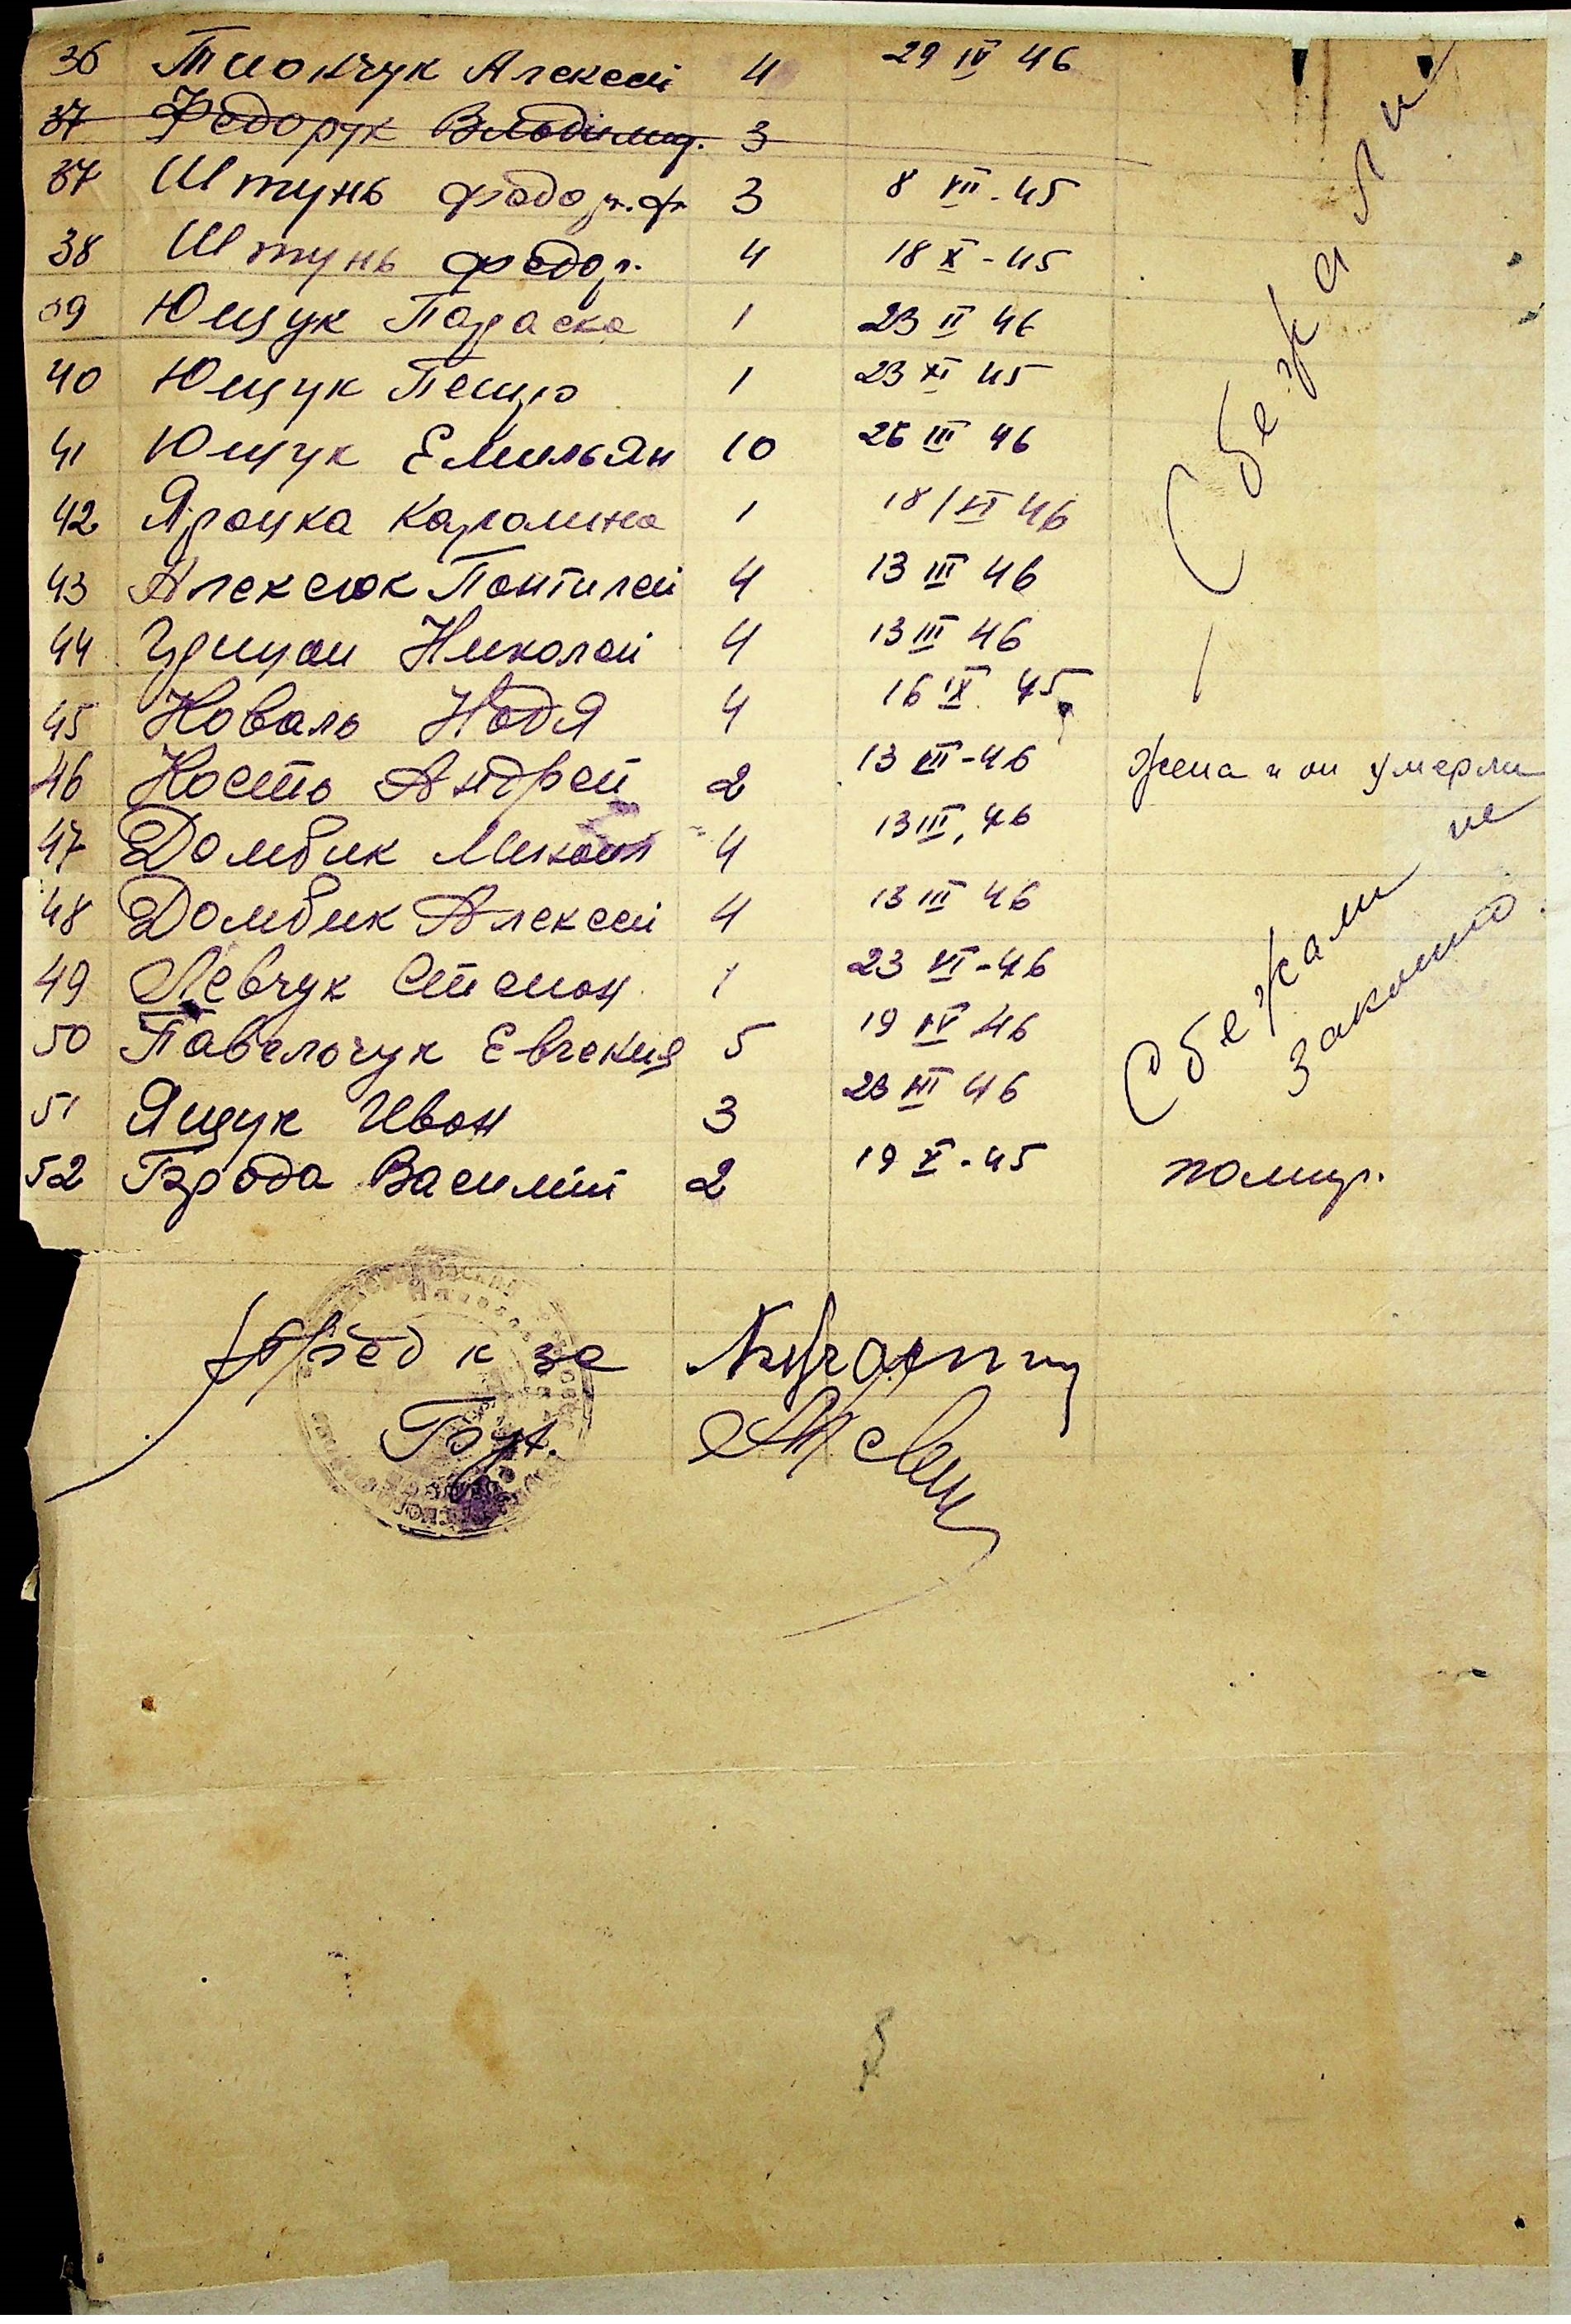 36 Тиончук Алексей 4 29 IV 46
37 Федорук Владимир. 3
37 Штунь Федор. Ф 3 8 VII - 45
38 Штунь Федор. 4 18 X - 45
39 Ющук Параска 1 23 II 46
40 Ющук Петро 1 23 XI 45
41 Ющук Емильян 10 26 III 46
42 Яроцка Каролина 1 18 / VI 46
43 Алексюк Понтилей 4 13 III 46
44 Николай 4 13 III 46
45 Коваль Надя 4 16 IX 45
Сбежали
46 Кость Андрей 2 13 VII - 46 Жена и он умерли
47 Домбик Микола 4 13 III, 46
48 Домбик Алексей 4 13 III 46
49 Левчук Степан 1 23 VI - 46
50 Павелочук Евгения 5 19 IV 46
51 Ящук Иван 3 23 III 46
Сбежали не
законно.
52 Города Василий 2 19 X - 45 помир.
Пред к за
Бух.